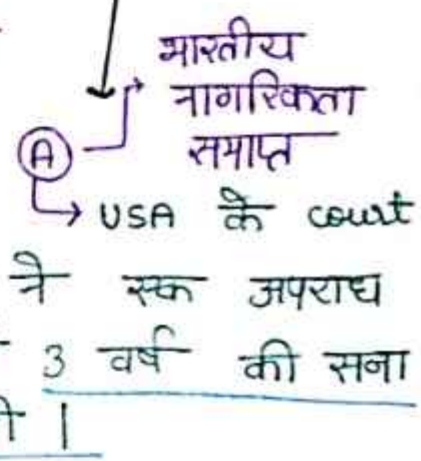 भारतीय
नागरिकता
समाप्त
A
USA के court
ने एक अपराध
3 वर्ष की सजा